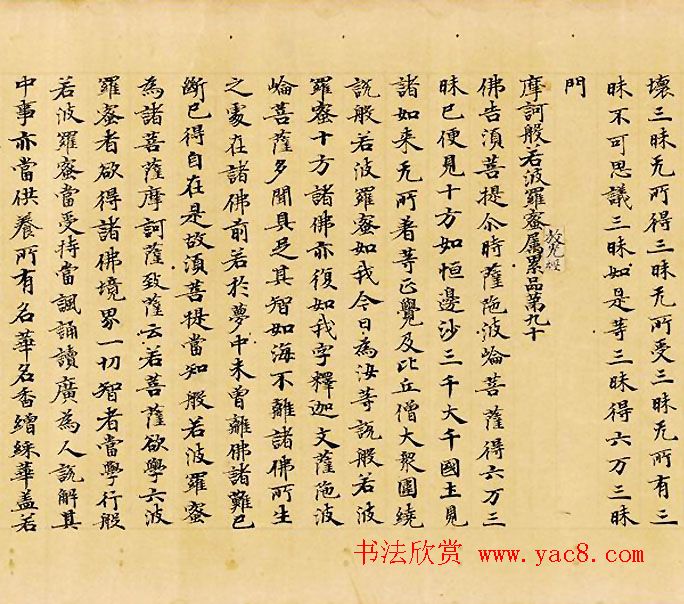 壞三昧无所得三昧无所受三昧无所有三
昧不可思議三昧如是等三昧得六万三昧
門
摩訶般若波羅蜜属累品第九十
放光經
佛告湏菩提尒時薩陁波崘菩薩得六万三
昧已便見十方如恒邊沙三千大千國土見
諸如来无所著等正覺及比丘僧大衆圍繞
說般若波羅蜜如我今日為汝等說般若波
羅蜜十方諸佛亦復如我字釋迦文薩陁波
崘菩薩多聞具足其智如海不離諸佛所生
之處在諸佛前若於夢中未曾離佛諸難已
斷已得自在是故湏菩提當知般若波羅蜜
為諸菩薩摩訶薩致薩云若菩薩欲學六波
羅蜜者欲得諸佛境界一切智者當學行般
若波羅蜜當受持當諷誦讀廣為人說解其
中事亦當供養所有名華名香繒綵華盖若
书法欣赏 www.yac8.com